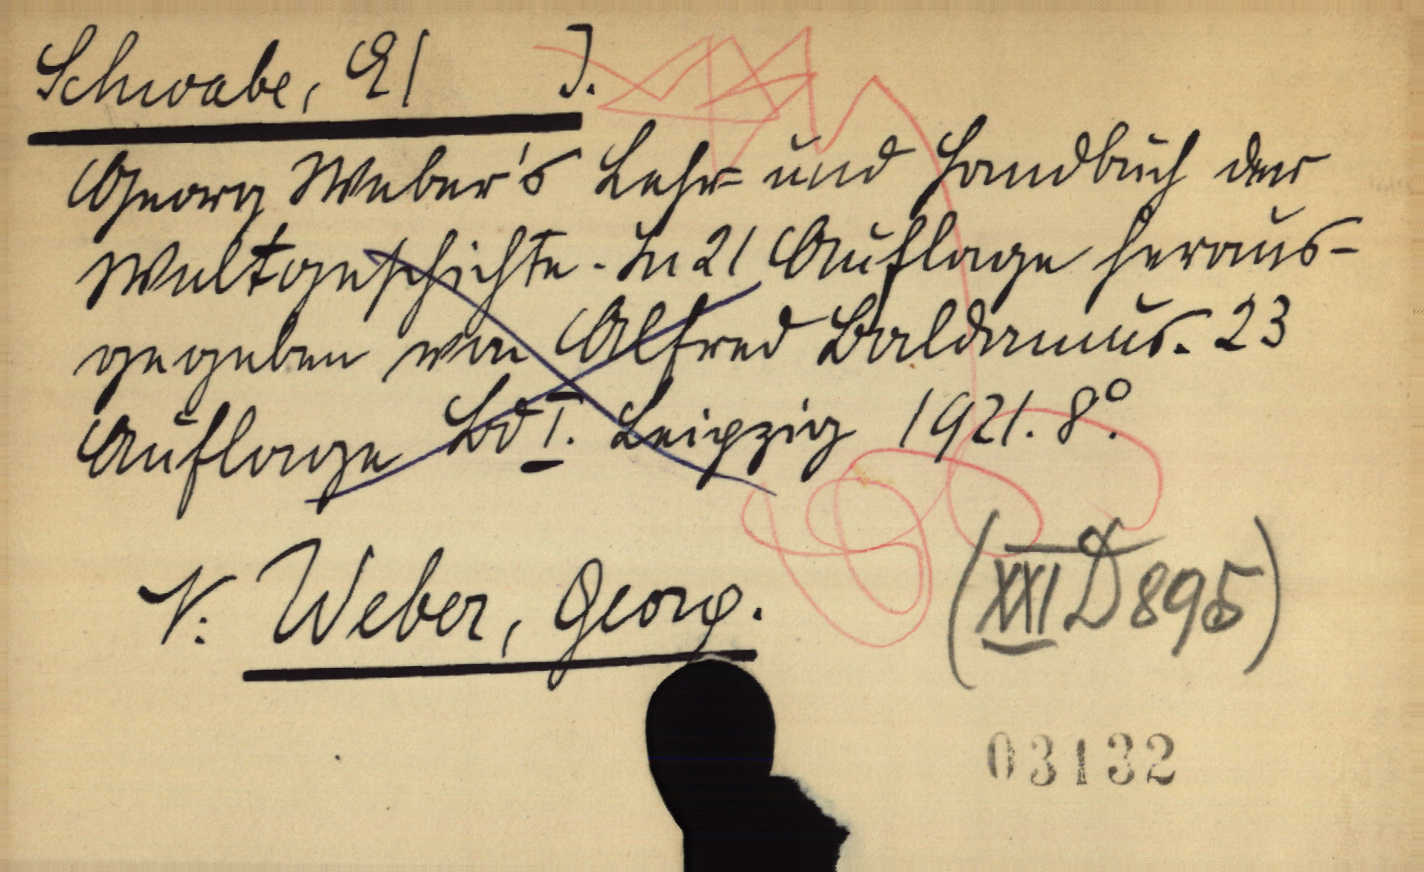 Schwabe, E. J.
Georg Weber's Lehr- und Handbuch der
Weltgeschichte. In 21 Auflage heraus-
gegeben von Alfred Baldamus. 23
Auflage Bd I. Leipzig 1921. 8°.
V: Weber, Georg.
(XXI D 895)
03132